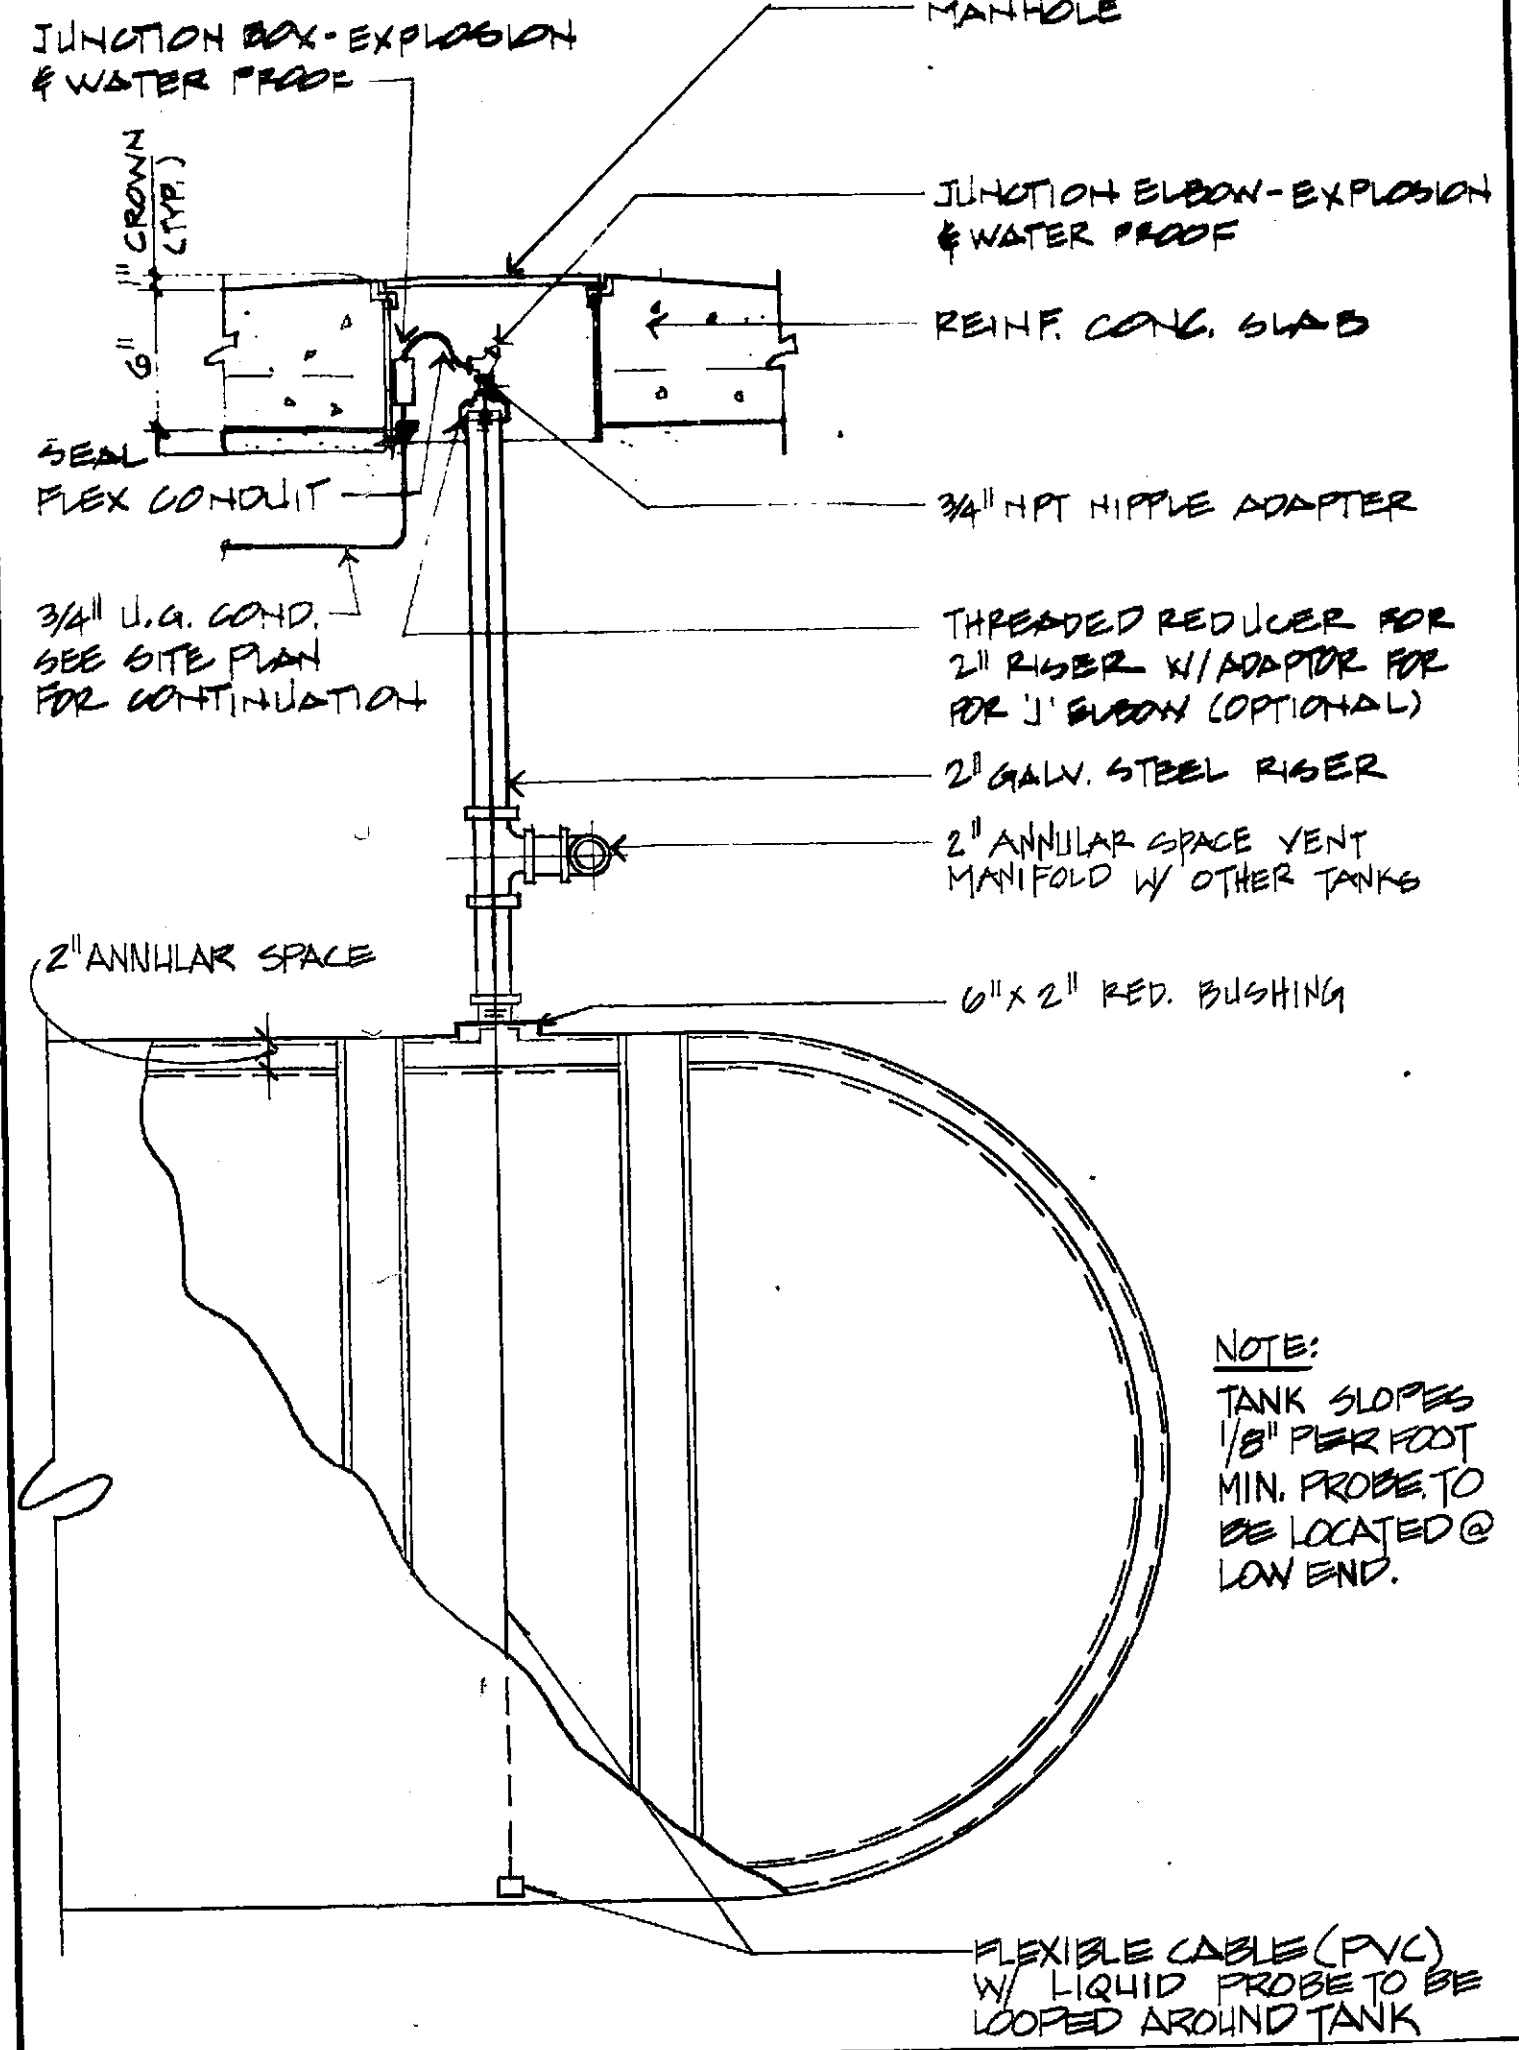 MANHOLE
JUNCTION BOX-EXPLOSION
& WATER PROOF
1" CROWN
(TYP.)
JUNCTION ELBOW-EXPLOSION
& WATER PROOF
REINF. CONC. SLAB
6"
SEAL
FLEX CONDUIT
3/4" NPT NIPPLE ADAPTER
3/4" U.G. COND.
SEE SITE PLAN
FOR CONTINUATION
THREADED REDUCER FOR
2" RISER W/ADAPTOR FOR
FOR 'J' ELBOW (OPTIONAL)
2" GALV. STEEL RISER
2" ANNULAR SPACE VENT
MANIFOLD W/ OTHER TANKS
2" ANNULAR SPACE
6" X 2" RED. BUSHING
NOTE:
TANK SLOPES
1/8" PER FOOT
MIN. PROBE TO
BE LOCATED @
LOW END.
FLEXIBLE CABLE (PVC)
W/ LIQUID PROBE TO BE
LOOPED AROUND TANK